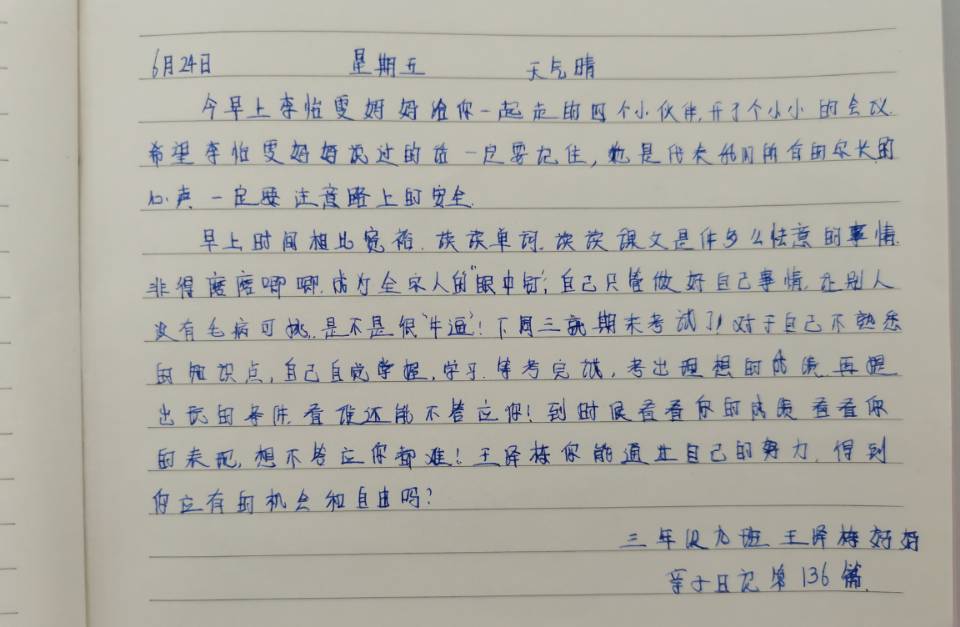 6月24日 星期五 天气晴
今早上李怡雯妈妈给你一起走的四个小伙伴,开了个小小的会议.
希望李怡雯妈妈说过的话一定要记住,她是代表我们所有的家长的
心声.一定要注意路上的安全.
早上时间相比宽裕.读读单词.读读课文是件多么惬意的事情.
非得磨磨唧唧.成为全家人的"眼中钉";自己只管做好自己事情,让别人
没有毛病可挑.是不是很"牛逼"!下周三就期末考试了!对于自己不熟悉
的知识点,自己自觉掌握,学习.等考完试,考出理想的成绩.再提
出玩的条件.看谁还能不答应你!到时候看看你的成绩看看你
的表现,想不答应你都难!王泽栋你能通过自己的努力.得到
你应有的机会和自由吗?
三年级九班王泽栋妈妈
亲子日记第136篇.